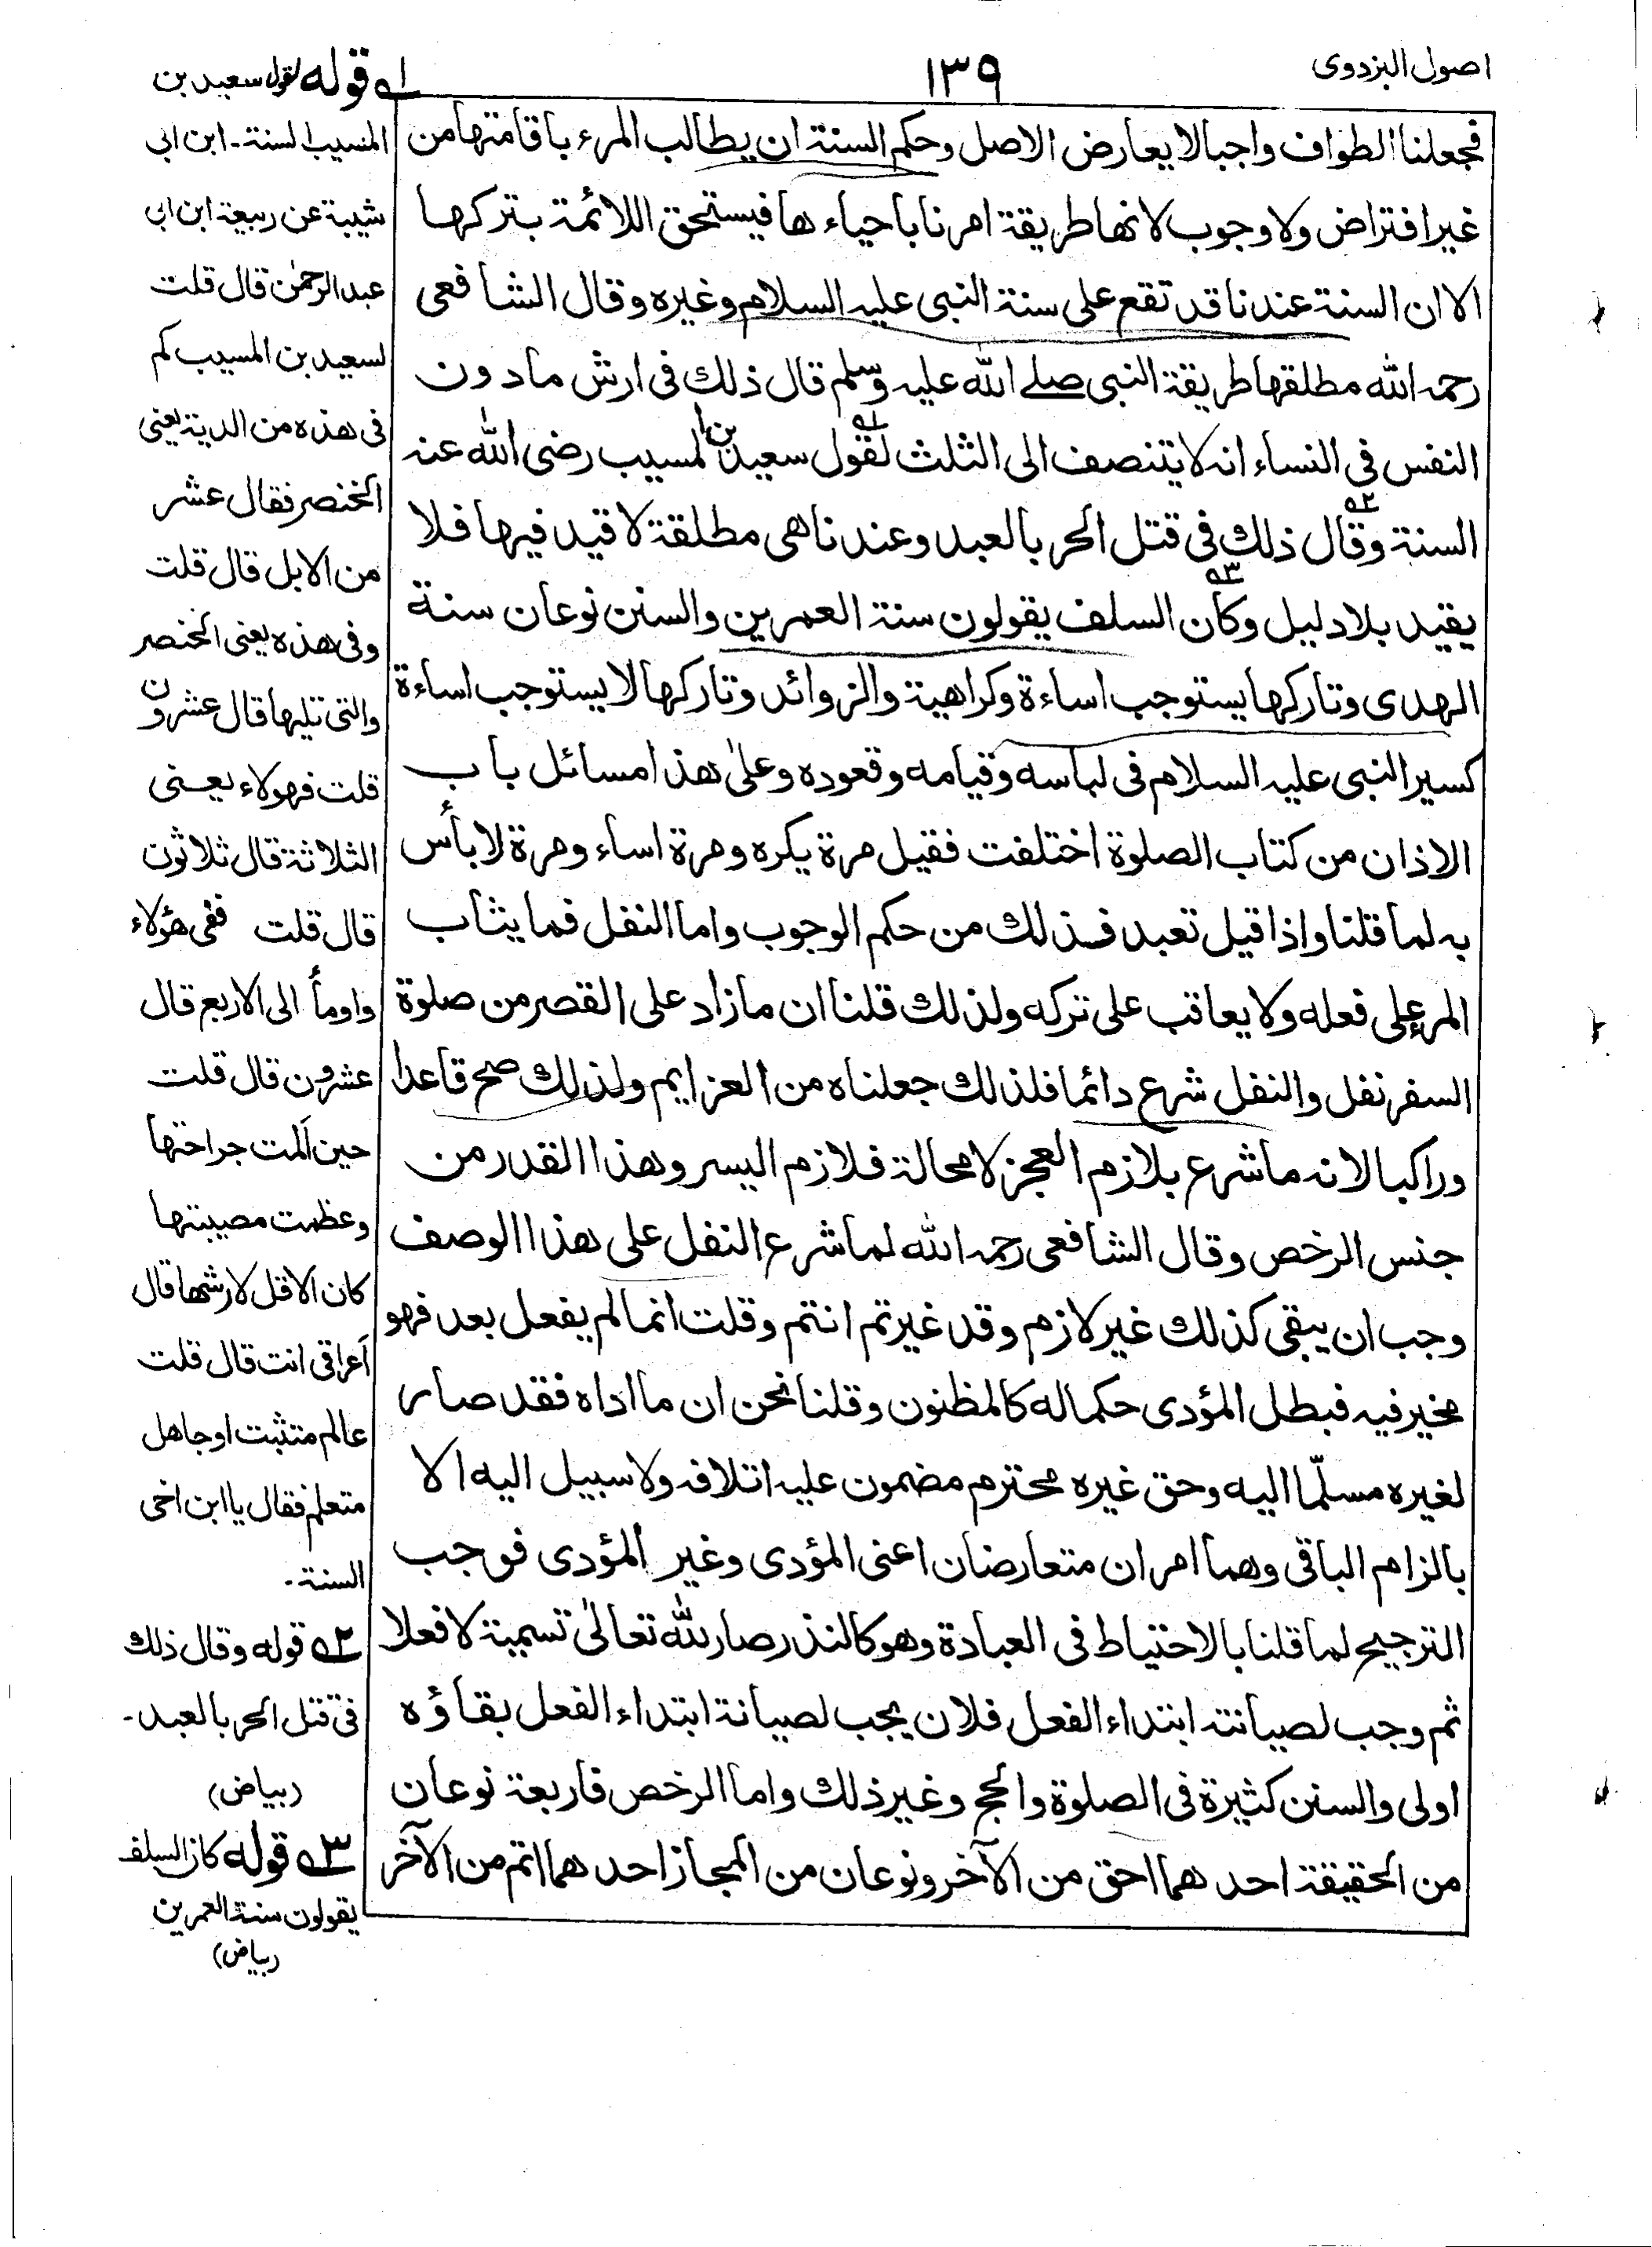 اصول البزدوى
١٣٩
فجعلنا الطواف واجبا لا يعارض الاصل وحكم السنة ان يطالب المرء باقامتها من
غير افتراض ولا وجوب لانها طريقة امرنا باحياء ها فيستحق اللائمة بتركها
الا ان السنة عندنا قد تقع على سنة النبى عليه السلام وغيره وقال الشافعى
رحمه الله مطلقها طريقة النبى صلے الله عليه وسلم قال ذلك فى ارش مادون
النفس فى النساء انه لا يتنصف الى الثلث لقول ١ه سعيد بن المسيب رضى الله عنه
السنة وقال ٢ه ذلك فى قتل الحر بالعبد وعندنا هى مطلقة لا قيد فيها فلا
يقيد بلا دليل وكان ٣ه السلف يقولون سنة العمرين والسنن نوعان سنة
الهدى وتاركها يستوجب اساءة وكراهية والزوائد وتاركها لا يستوجب اساءة
كسير النبى عليه السلام فى لباسه وقيامه وقعوده وعلىٰ هذا مسائل باب
الاذان من كتاب الصلوة اختلفت فقيل مرة يكره ومرة اساء ومرة لا بأس
به لما قلنا واذا قيل تعبد فذلك من حكم الوجوب واما النفل فما يثاب
المرء على فعله ولا يعاقب على تركه ولذلك قلنا ان ما زاد على القصر من صلوة
السفر نفل والنفل شرع دائما فلذلك جعلناه من العزايم ولذلك صح قاعدا
وراكبا لانه ما شرع بلازم العجز لا محالة فلازم اليسر وهذا القدر من
جنس الرخص وقال الشافعى رحمه الله لما شرع النفل على هذا الوصف
وجب ان يبقى كذلك غير لازم وقد غيرتم انتم وقلت انما لم يفعل بعد فهو
مخير فيه فبطل المؤدى حكما له كالمظنون وقلنا نحن ان ما اداه فقد صار
لغيره مسلّما اليه وحق غيره محترم مضمون عليه اتلافه ولا سبيل اليه الا
بالزام الباقى وهما امران متعارضان اعنى المؤدى وغير المؤدى فوجب
الترجيح لما قلنا بالاحتياط فى العبادة وهو كالنذر صار لله تعالىٰ تسمية لا فعلا
ثم وجب لصيانته ابتداء الفعل فلان يجب لصيانة ابتداء الفعل بقاؤه
اولى والسنن كثيرة فى الصلوة والحج وغير ذلك واما الرخص فاربعة نوعان
من الحقيقة احدهما احق من الآخر ونوعان من المجاز احدهما اتم من الآخر
١ه قوله لقول سعيد بن
المسيب السنة۔ ابن ابى
شيبة عن ربيعة ابن ابى
عبد الرحمٰن قال قلت
لسعيد بن المسيب كم
فى هذه من الدية يعنى
الخنصر فقال عشر
من الابل قال قلت
وفى هذه يعنى الخنصر
والتى تليها قال عشرون
قلت فهولاء يعنى
الثلاثة قال ثلاثون
قال قلت ففى هؤلاء
واومأ الى الاربع قال
عشرون قال قلت
حين آلمت جراحتها
وعظمت مصيبتها
كان الاقل لارشها قال
أعراقى انت قال قلت
عالم متثبت او جاهل
متعلم فقال يا ابن اخى
السنة۔
٢ه قوله وقال ذلك
فى قتل الحر بالعبد۔
(بياض)
٣ه قوله كان السلف
يقولون سنة العمرين
(بياض)